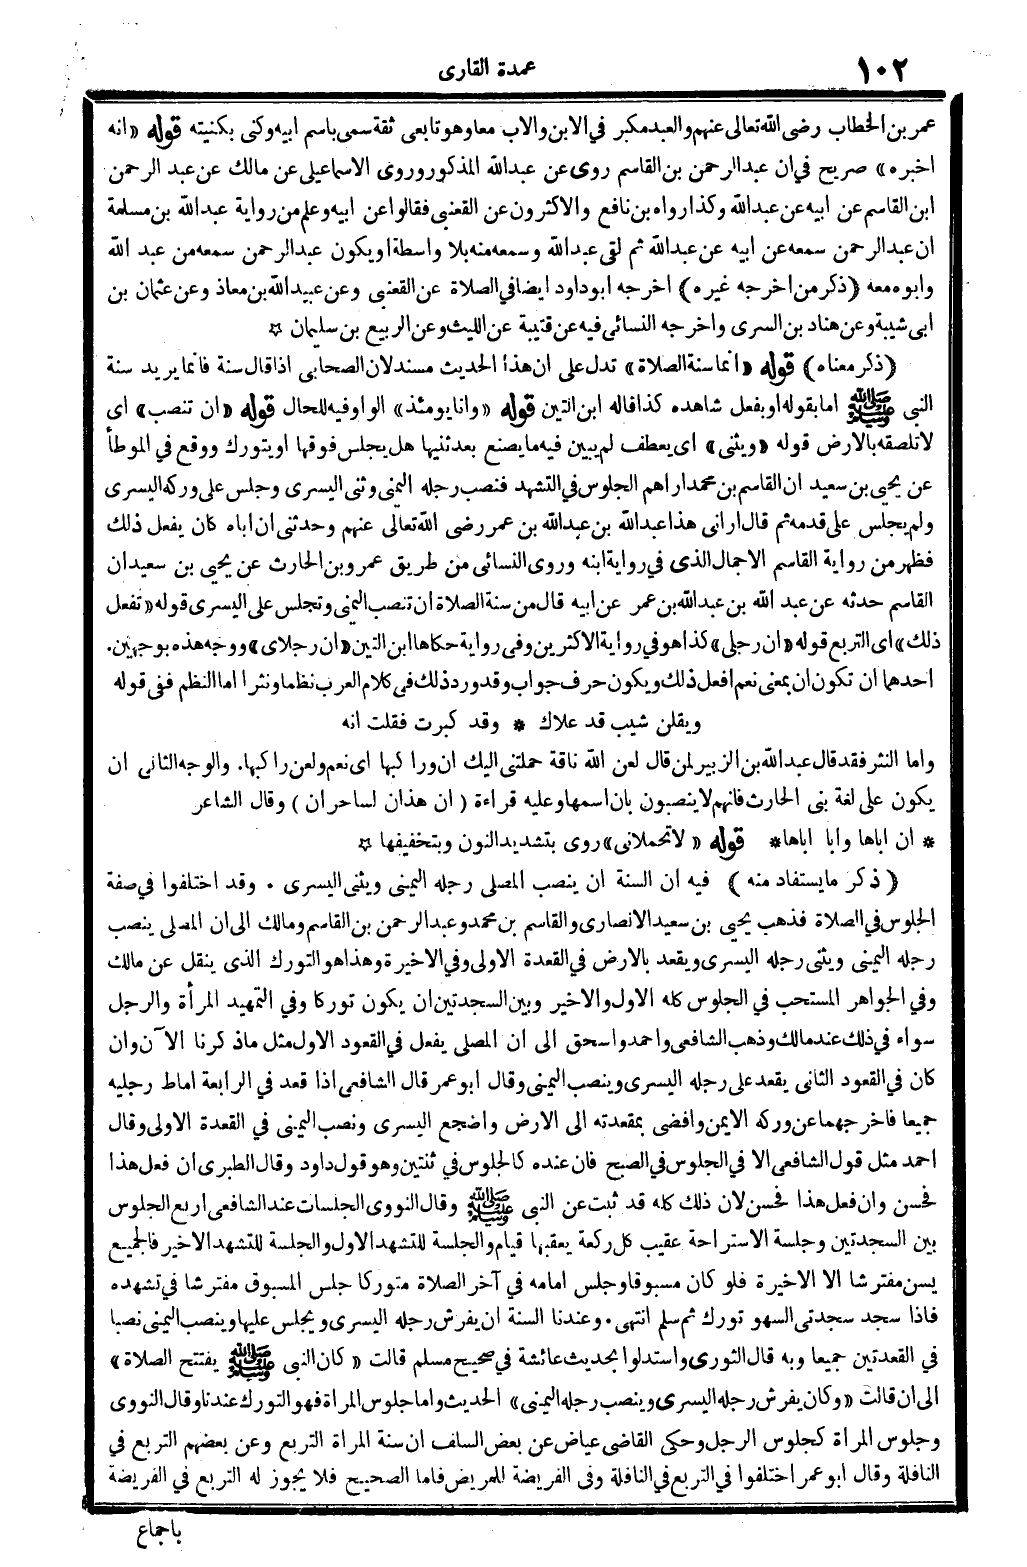 ١٠٢
عمدة القارى
عمر بن الخطاب رضى الله تعالى عنهم والعبد مكبر في الابن والاب معا وهو تابعى ثقة سمى باسم ابيه وكنى بكنيته قوله «انه
اخبره» صريح في ان عبد الرحمن بن القاسم روى عن عبدالله المذكور وروى الاسماعيلى عن مالك عن عبد الرحمن
ابن القاسم عن ابيه عن عبدالله وكذا رواه بن نافع والاكثرون عن القعنبى فقالوا عن ابيه وعلم من رواية عبدالله بن مسلمة
ان عبدالرحمن سمعه عن ابيه عن عبدالله ثم لقى عبدالله وسمعه منه بلا واسطة او يكون عبدالرحمن سمعه من عبد الله
وابوه معه (ذكر من اخرجه غيره) اخرجه ابو داود ايضا في الصلاة عن القعنبى وعن عبيدالله بن معاذ وعن عثمان بن
ابى شيبة وعن هناد بن السرى واخرجه النسائى فيه عن قتيبة عن الليث وعن الربيع بن سليمان ☆
(ذكر معناه) قوله «انما سنة الصلاة» تدل على ان هذا الحديث مسند لان الصحابى اذا قال سنة فانما يريد سنة
النبى ﷺ اما بقوله او بفعل شاهده كذا قاله ابن التين قوله «وانا يومئذ» الواو فيه للحال قوله «ان تنصب» اى
لا تلصقه بالارض قوله «ويثنى» اى يعطف لم يبين فيه ما يصنع بعد ثنيها هل يجلس فوقها او يتورك ووقع في الموطأ
عن يحيى بن سعيد ان القاسم بن محمد اراهم الجلوس في التشهد فنصب رجله اليمنى وثنى اليسرى وجلس على وركه اليسرى
ولم يجلس على قدمه ثم قال ارانى هذا عبدالله بن عبدالله بن عمر رضى الله تعالى عنهم وحدثنى ان اباه كان يفعل ذلك
فظهر من رواية القاسم الاجمال الذى في رواية ابنه وروى النسائى من طريق عمرو بن الحارث عن يحيى بن سعيد ان
القاسم حدثه عن عبد الله بن عبدالله بن عمر عن ابيه قال من سنة الصلاة ان تنصب اليمنى وتجلس على اليسرى قوله «تفعل
ذلك» اى التربع قوله «ان رجلى» كذا هو في رواية الاكثرين وفى رواية حكاها ابن التين «ان رجلاى» ووجه هذه بوجهين.
احدهما ان تكون ان بمعنى نعم افعل ذلك ويكون حرف جواب وقد ورد ذلك فى كلام العرب نظما ونثرا اما النظم ففى قوله
ويقلن شيب قد علاك * وقد كبرت فقلت انه
واما النثر فقد قال عبدالله بن الزبير لمن قال لعن الله ناقة حملتنى اليك ان وراكبها اى نعم ولعن راكبها. والوجه الثانى ان
يكون على لغة بنى الحارث فانهم لا ينصبون بان اسمها وعليه قراءة (ان هذان لساحران) وقال الشاعر
* ان اباها وابا اباها* قوله «لا تحملانى» روى بتشديد النون وبتخفيفها ☆
(ذكر ما يستفاد منه) فيه ان السنة ان ينصب المصلى رجله اليمنى ويثنى اليسرى . وقد اختلفوا في صفة
الجلوس في الصلاة فذهب يحيى بن سعيد الانصارى والقاسم بن محمد وعبد الرحمن بن القاسم ومالك الى ان المصلى ينصب
رجله اليمنى ويثنى رجله اليسرى ويقعد بالارض في القعدة الاولى وفي الاخيرة وهذا هو التورك الذى ينقل عن مالك
وفي الجواهر المستحب في الجلوس كله الاول والاخير وبين السجدتين ان يكون توركا وفي التمهيد المرأة والرجل
سواء في ذلك عند مالك وذهب الشافعى واحمد واسحق الى ان المصلى يفعل في القعود الاول مثل ما ذكرنا الآن وان
كان في القعود الثانى يقعد على رجله اليسرى وينصب اليمنى وقال ابو عمر قال الشافعى اذا قعد في الرابعة اماط رجليه
جميعا فاخرجهما عن وركه الايمن وافضى بمقعدته الى الارض واضجع اليسرى ونصب اليمنى في القعدة الاولى وقال
احمد مثل قول الشافعى الا في الجلوس في الصبح فان عنده كالجلوس في ثنتين وهو قول داود وقال الطبرى ان فعل هذا
فحسن وان فعل هذا فحسن لان ذلك كله قد ثبت عن النبى ﷺ وقال النووى الجلسات عند الشافعى اربع الجلوس
بين السجدتين وجلسة الاستراحة عقيب كل ركعة يعقبها قيام والجلسة للتشهد الاول والجلسة للتشهد الاخير فالجميع
يسن مفترشا الا الاخيرة فلو كان مسبوقا وجلس امامه في آخر الصلاة متوركا جلس المسبوق مفترشا في تشهده
فاذا سجد سجدتى السهو تورك ثم سلم انتهى . وعندنا السنة ان يفرش رجله اليسرى ويجلس عليها وينصب اليمنى نصبا
في القعدتين جميعا وبه قال الثورى واستدلوا بحديث عائشة في صحيح مسلم قالت «كان النبى ﷺ يفتتح الصلاة»
الى ان قالت «وكان يفرش رجله اليسرى وينصب رجله اليمنى» الحديث واما جلوس المرأة فهو التورك عندنا وقال النووى
وجلوس المرأة كجلوس الرجل وحكى القاضى عياض عن بعض السلف ان سنة المرأة التربع وعن بعضهم التربع في
النافلة وقال ابو عمر اختلفوا في التربع في النافلة وفى الفريضة للمريض فاما الصحيح فلا يجوز له التربع في الفريضة
باجماع